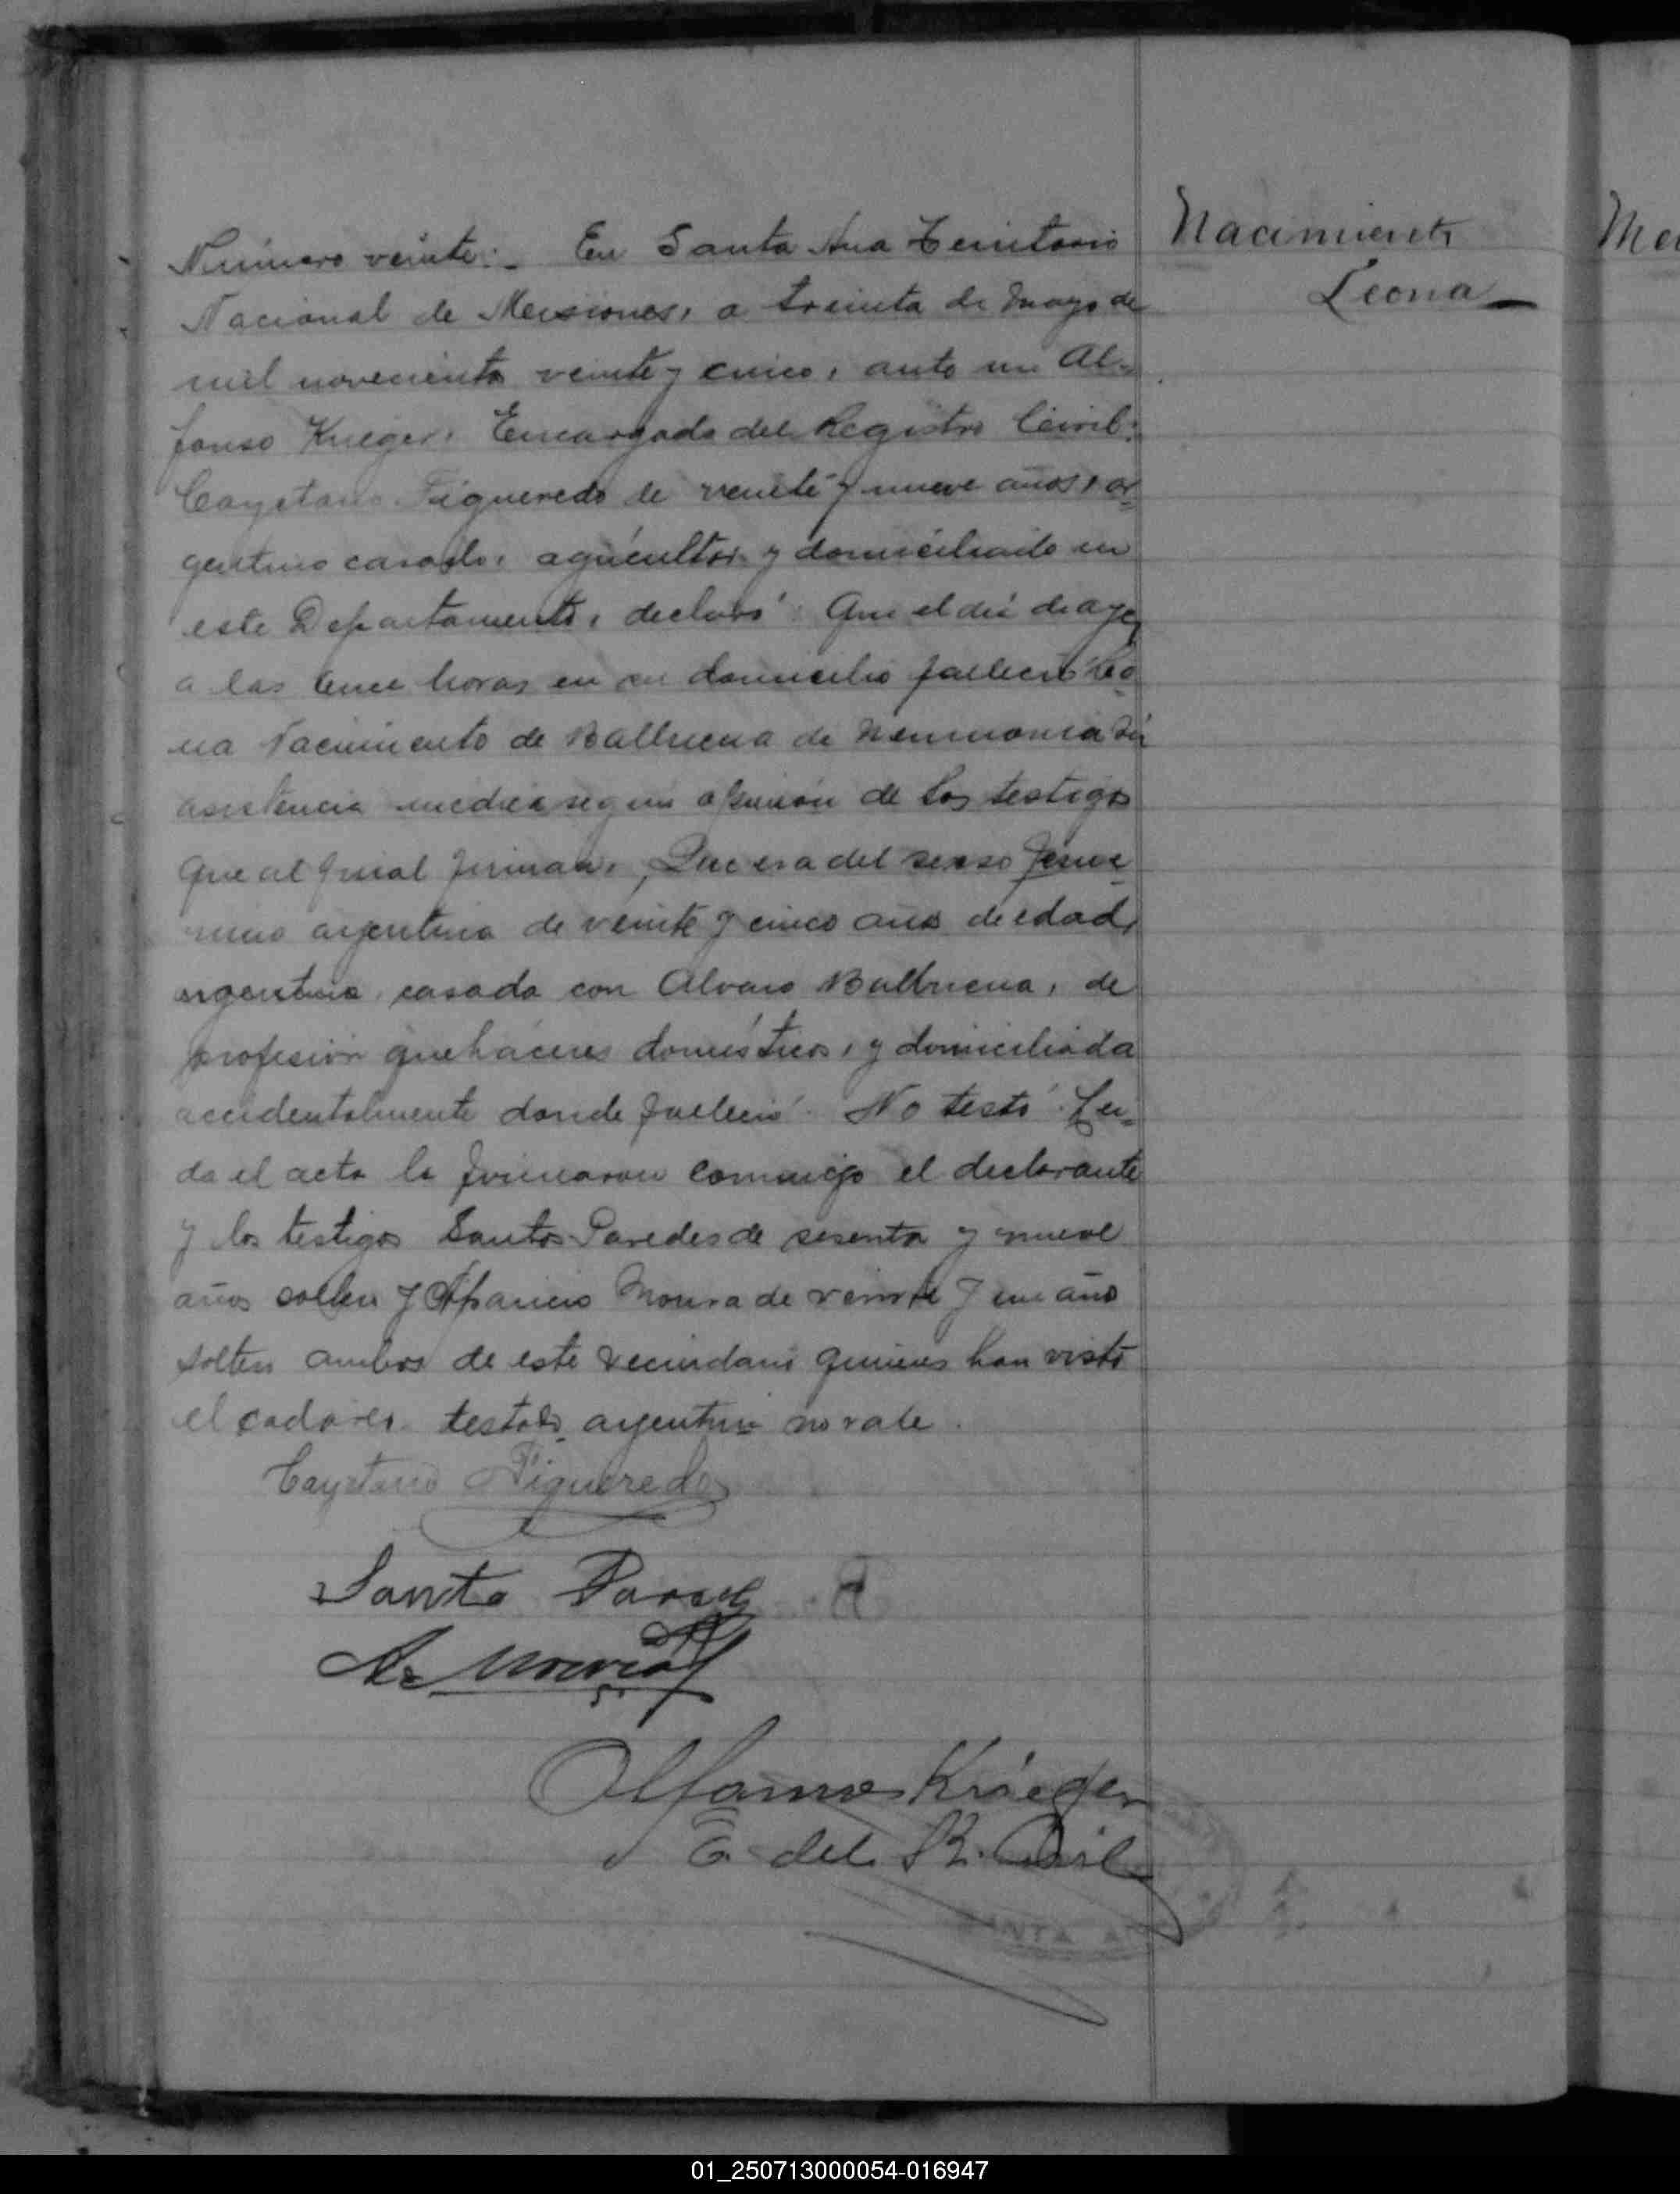 Número veinte:- En Santa Ana Territorio
Nacional de Mesiones, a treinta de mayo de
mil noveciento veinte y cinco, ante mi Al-
fonso Krieger, Encargado del Registro Civil:
Cayetano Figueredo de veinte y nueve años, ar
gentino casado, agricultor y domiciliado en
este Departamento, declaró: Que el día de ayer
a las once horas en su domicilio falleció Leo
na Nacimiento de Balbuena de neumonia sin
asistencia medica segun opinión de los testigos
que al final firman, Que era del sexso feme
nino argentina de veinte y cinco años de edad,
argentina, casada con Alvaro Balbuena, de
profesión quehaceres domésticos, y domiciliada
accidentalmente donde falleció. No testó. Lei-
da el acta la firmaron conmigo el declarante
y los testigos Santos Paredes de sesenta y nueve
años soltero y Aparicio Moura de veinte y un año
soltero ambos de este vecindario quienes han visto
el cadaver. testado argentina no vale.
Cayetano Figueredo
Santo Pared
A. Moura
Alfonso Krieger
E. del R. Civil
NTA A
Nacimiento
Leona
01_250713000054-016947